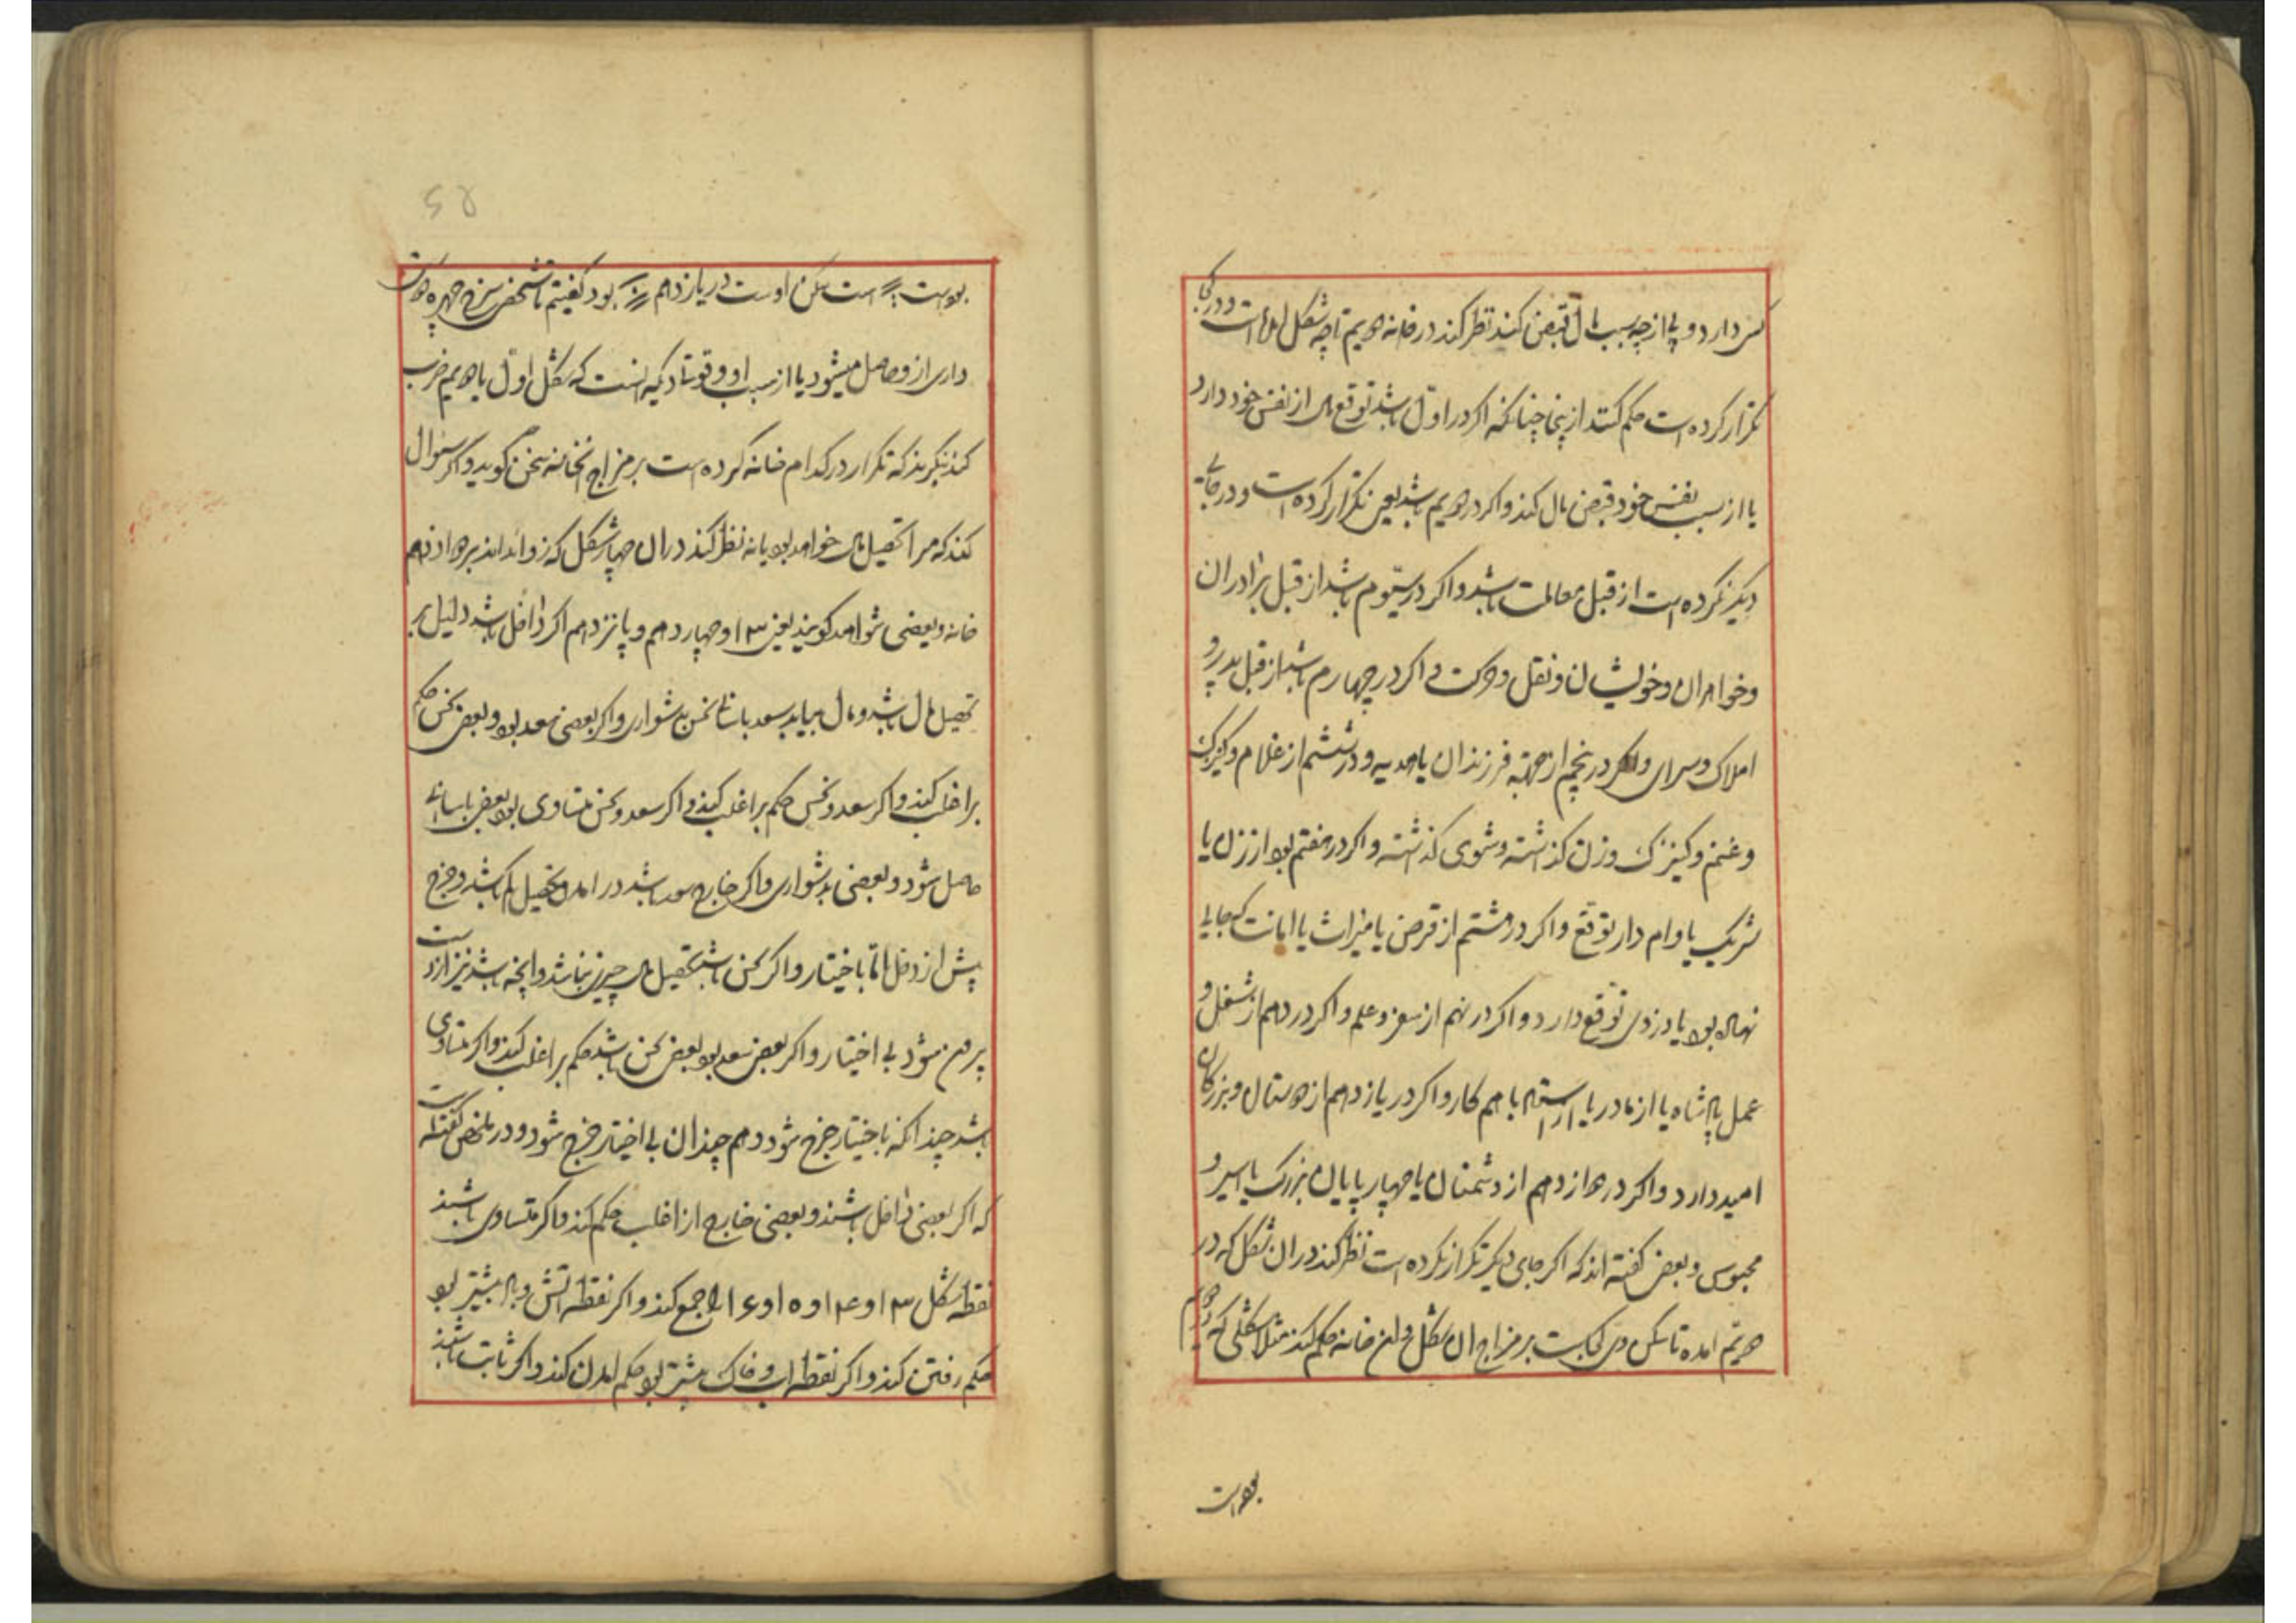 کس دارد و یا از چه سبب مال قبض کند نظر کند در خانه دویم تا چه شکل است و در کجا
تکرار کرده است حکم کند از پنجا چنانکه اگر در اول باشد توقع مال از نفس خود دارد
یا از سبب نفس خود قبض مال کند و اگر در دویم باشد یعنی تکرار کرده است و در جای
دیگر نکرده است از قبل معاملت باشد و اگر در سیوم باشد از قبل برادران
و خواهران و خویشان و نقل و حرکت و اگر در چهارم باشد از قبل پدر و
املاک و سرای و اگر در پنجم از جهته فرزندان یا هدیه و در ششم از غلام و کنیزک
و غنم و کنیزک و زن گذشته و شوی گذشته و اگر در هفتم بود از زن یا
شریک یا وام دار توقع و اگر در هشتم از قرض یا میراث یا امانت که جایی
نهاده بود یا دزدی توقع دارد و اگر در نهم از سفر و علم و اگر در دهم از شغل و
عمل پادشاه یا از مادر یا با هم کار و اگر در یازدهم از دوستان و بزرگان
امید دارد و اگر در دوازدهم از دشمنان یا چهارپایان بزرگ یا اسیر و
محبوس و بعضی گفته اند که اگر جای دیگر تکرار نکرده است نظر کند در ان شکل که در
دویم امده تا سکن وی کجاست بر مزاج ان شکل و ان خانه حکم کند مثلا شکلی که در دویم
بوده است
۶۵
بوده است است سکن اوست در یازدهم بود گفتیم تا شخص سرخ چهره
داری از و حاصل میشود یا از سبب او وقوتا دیگر انست که شکل اول با دویم ضرب
کند بنگرند که تکرار در کدام خانه کرده است بر مزاج انخانه سخن گوید و اگر سوال
کند که مرا تحصیل مال خواهد بود یا نه نظر کند در ان چهار شکل که زوائد اند بر دوازدهم
خانه و بعضی شواهد گویند یعنی ۱۳ و چهاردهم و پانزدهم اگر داخل باشد دلیل بر
تحصیل مال باشد و مال بیابد سعد باسانی نحس بدشواری و اگر بعضی سعد بود و بعضی نحس حکم
بر اغلب کند و اگر سعد و نحس حکم بر اغلب کند و اگر سعد و نحس متساوی بود بعضی باسانی
حاصل شود و بعضی بدشواری و اگر خارج سعد باشد در امدن تحصیل کم باشد و خرج
پیش از دخل اما باختیار و اگر نحس باشد تحصیل مال چیزی نباشد و انچه باشد نیز از دست
برون شود بی اختیار و اگر بعضی سعد بود بعضی نحس باشد حکم بر اغلب کند و اگر متساوی
باشد چندانکه باختیار خرج شود و هم چندان بی اختیار خرج شود و در ملخص گفته است
که اگر بعضی داخل باشند و بعضی خارج از اغلب حکم کند و اگر متساوی باشند
نقطه شکل ۱۳ و ۱۴ و ۱۵ و ۱۶ را جمع کند و اگر نقطه اتش و باد بیشتر بود
حکم رفتن کند و اگر نقطه اب و خاک بیشتر بود حکم امدن کند و اگر ثابت باشند